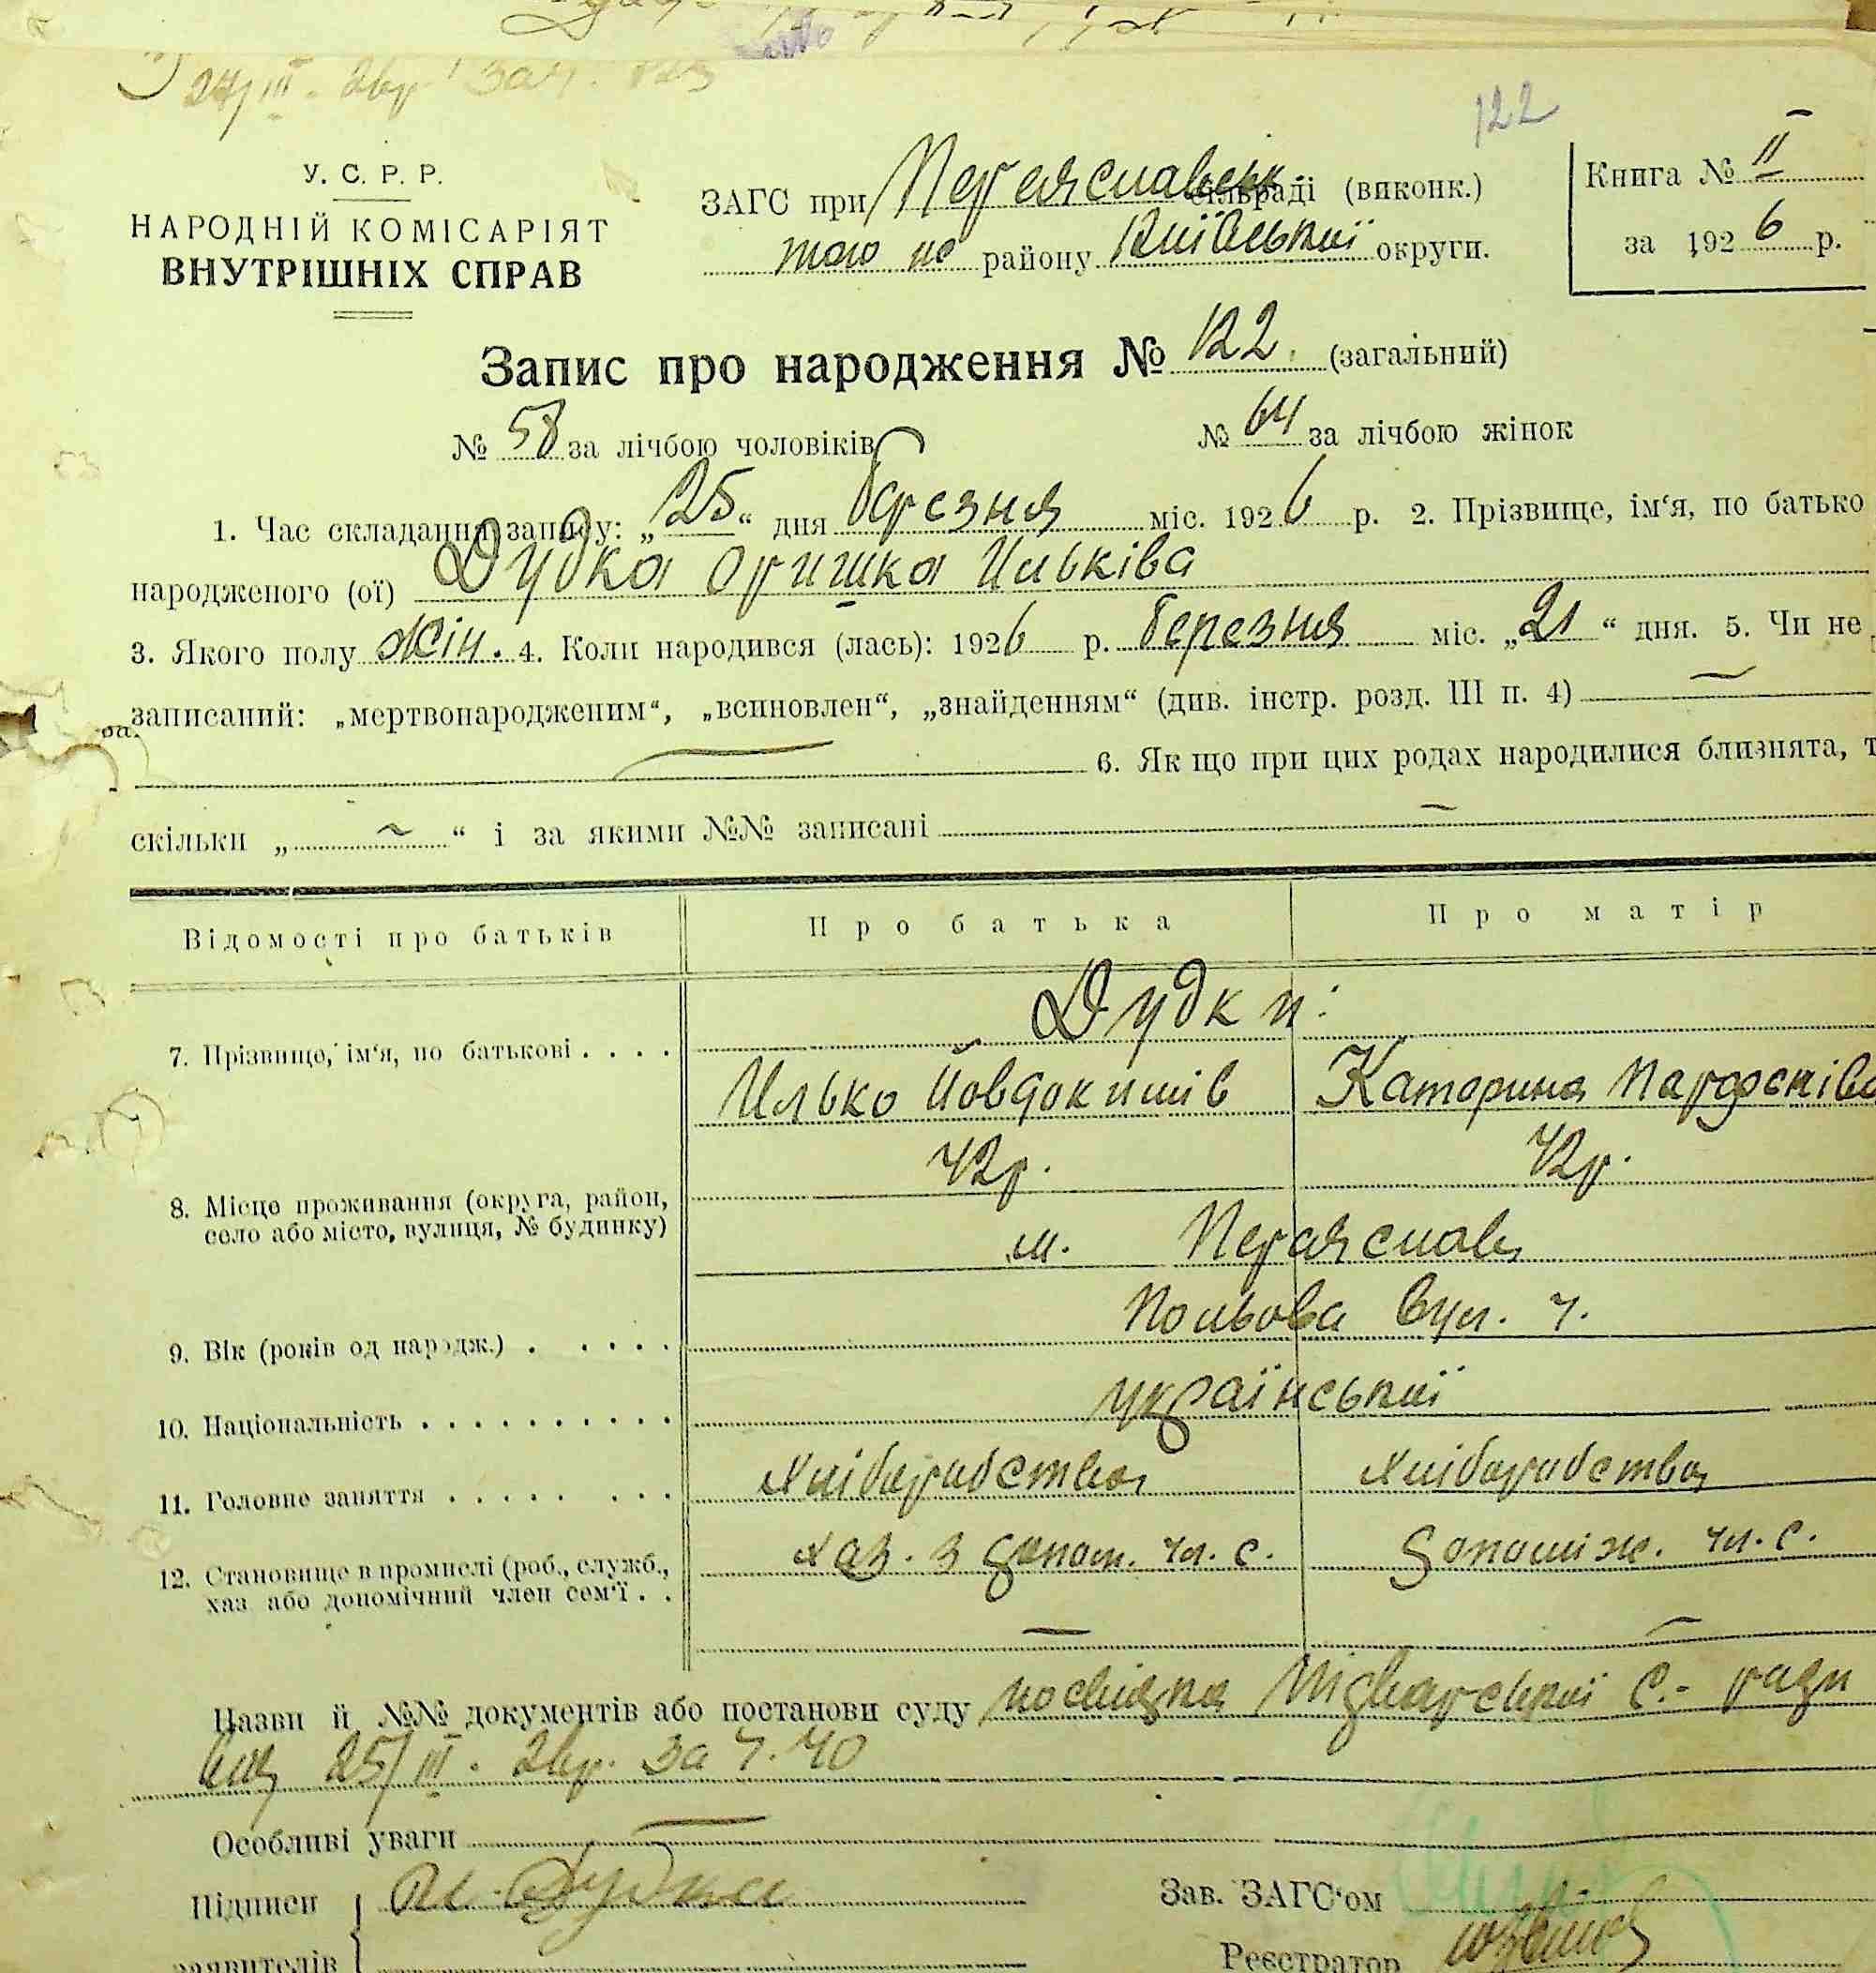 122
У. С. Р. Р.
НАРОДНІЙ КОМІСАРІЯТ
ВНУТРІШНІХ СПРАВ
ЗАГС при Переяславськ. сільраді (виконк.)
того ж району Київської округи.
Книга № II
за 1926 р.
Запис про народження № 122. (загальний)
№ 58 за лічбою чоловіків
№ 64 за лічбою жінок
1. Час складання запису: „25“ дня березня міс. 1926 р. 2. Прізвище, ім‘я, по батько
народженого (ої) Дудка Оришка Ильківа
3. Якого полу жін. 4. Коли народився (лась): 1926 р. березня міс. „21“ дня. 5. Чи не
записаний: „мертвонародженим“, „всиновлен“, „знайденням“ (див. інстр. розд. III п. 4)
6. Як що при цих родах народилися близнята, т
скільки „ “ і за якими №№ записані
Відомості про батьків
Про батька
Про матір
Дудки:
7. Прізвище, ім‘я, по батькові . . . .
Илько Йовдокимів
Каторина Парфенівა
42р.
42р.
8. Місце проживання (округа, район,
село або місто, вулиця, № будинку)
м. Переяслав
Польова вул. 7.
9. Вік (років од народж.) . . . . .
української
10. Національність . . . . . . . . . .
хліборобство
хліборобство
11. Головне заняття . . . . . . . .
хаз. з допом. чл. с.
допоміж. чл. с.
12. Становище в промислі (роб., служб.,
хаз. або допомічний член сем‘ї . .
Назви й №№ документів або постанови суду посвідка Підварської С.-ради
від 25/III. 26р. за ч. 40
Особливі уваги
Підписи
заявителів
Дудка
Зав. ЗАГС‘ом
Реєстратор